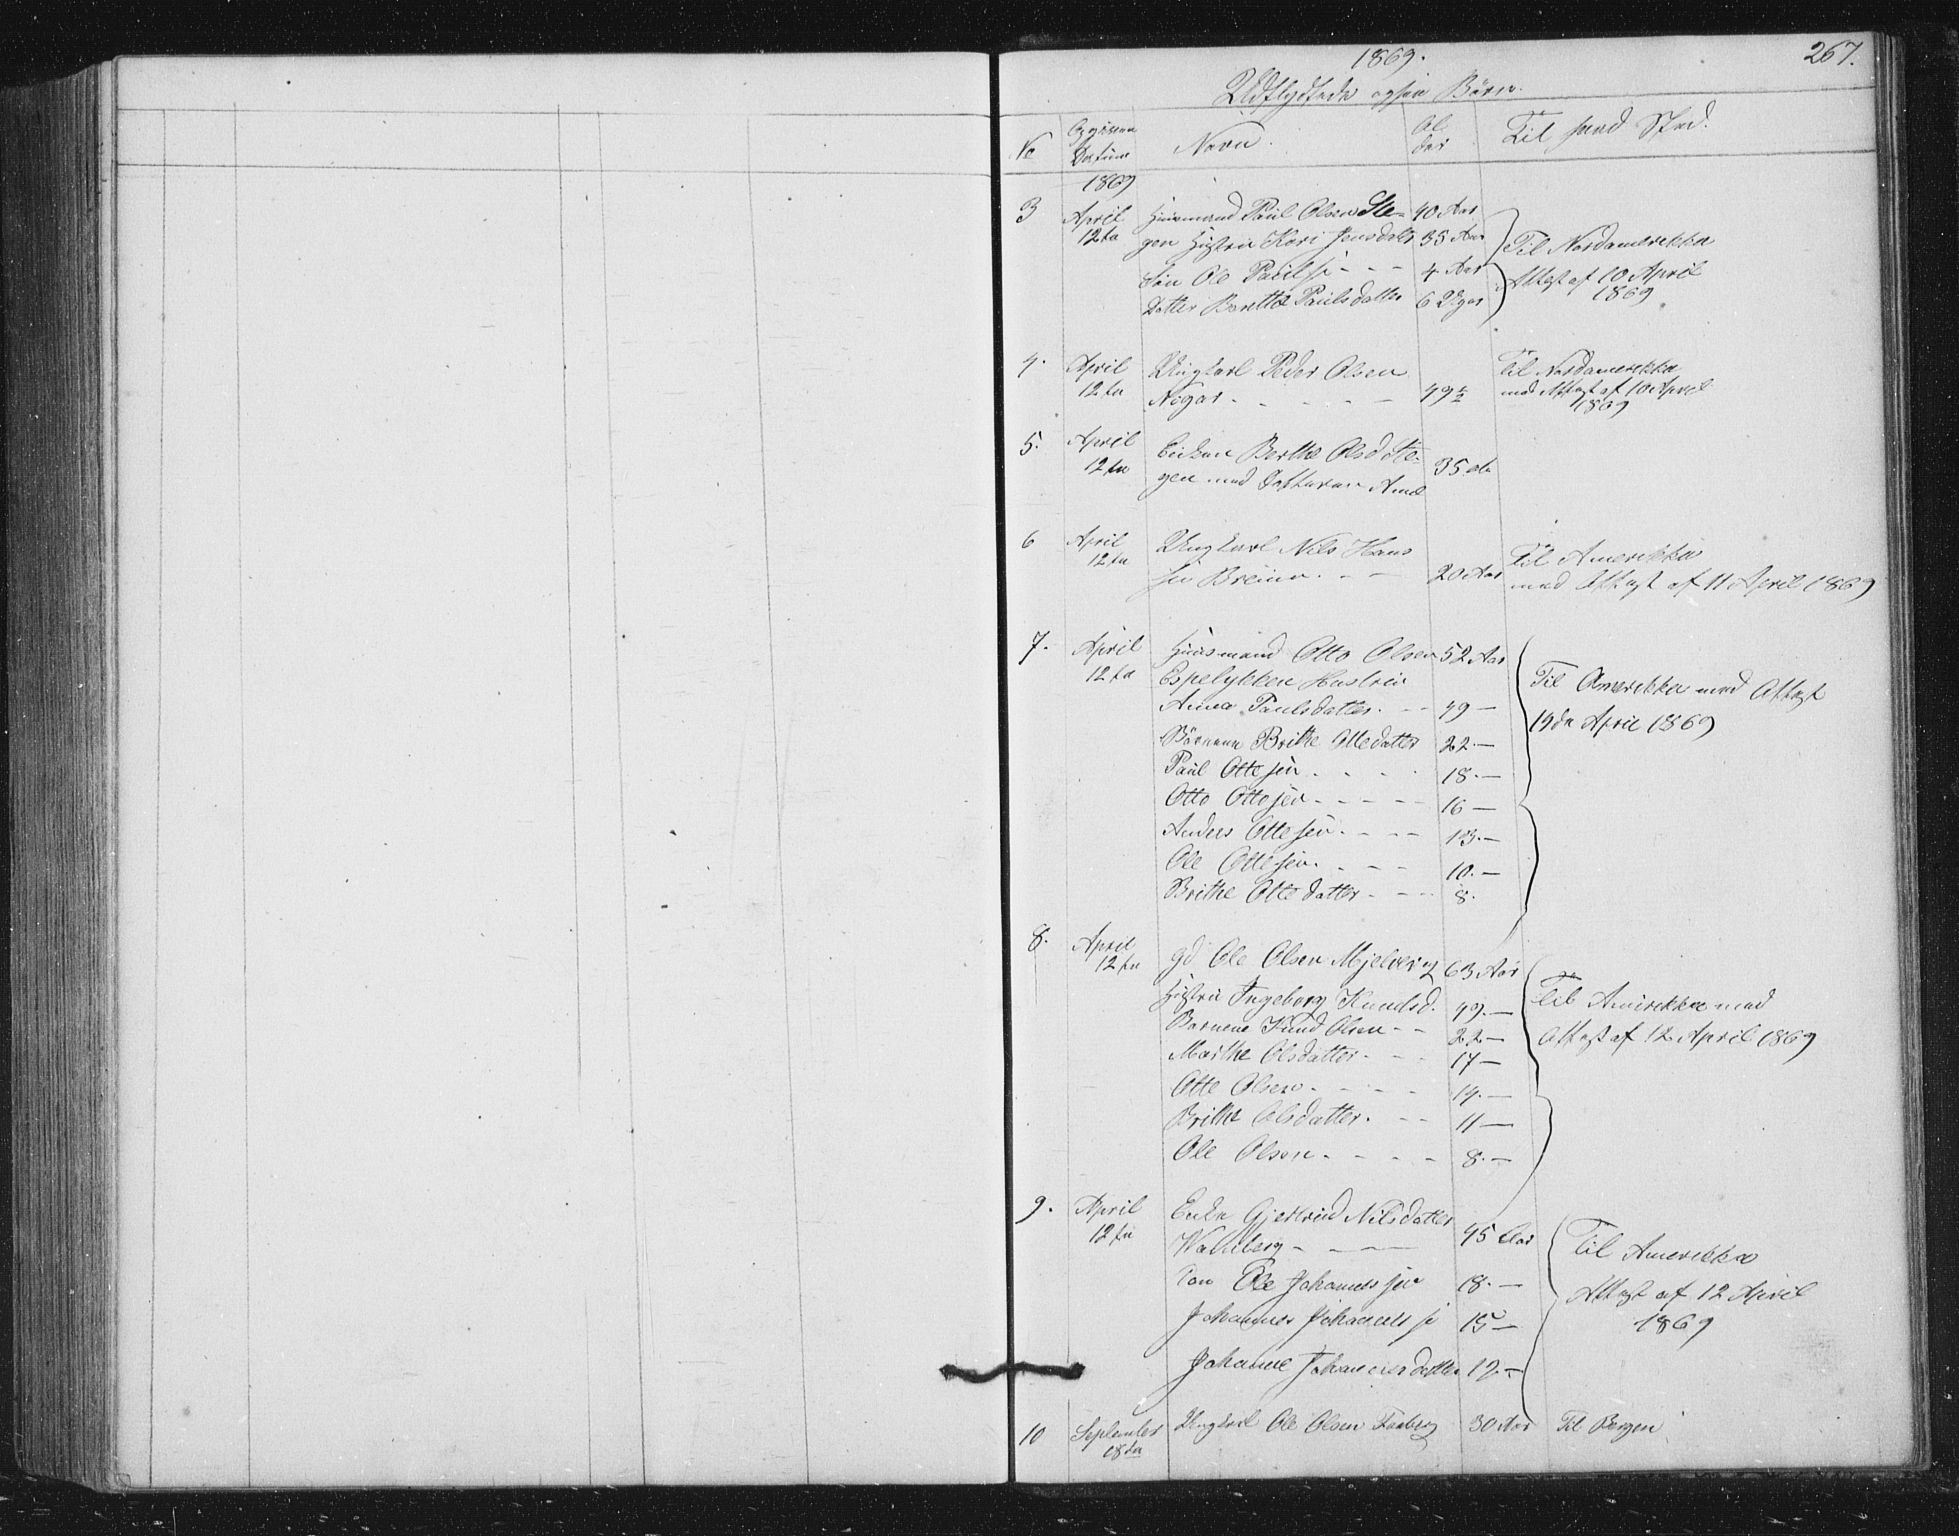 267.
1869.
Udflydtede Börn.
No Datum Navn. Al der Til hvad Sted.
1869
3 April Huusmand Paul Olsen Ste- 40 Aar
12te gen Hustru Kari Jensdatter 35 Aar Til Nordamerikka
Sön Ole Paulsen - - - 4 Aar Attest af 10 April
Datter Berette Paulsdatter 6 Uger 1869
4. April Ungkarl Peder Olsen Til Nordamerikka
12te - - - - - 49 med Attest af 10 April
1869
5. April Enken Berthe Olsd Ste-
12te gen med Datteren Anne 35
6 April Ungkarl Nils Hans Til Amerikka
12te sen - - 20 Aar med Attest af 11 April 1869
7. April Huusmand Otto Olsen 52 Aar
12te Espelykken Hustru Til Amerikka med Attest
Anna Paulsdatter. - - 49 - 14de April 1869
Börnene Brithe Ottedatter 22.-
Paul Ottesen . . . . 18.-
Otto Ottosen - - - - - 16 -
Anders Ottesen. - - - 13.-
Ole Ottesen. - - - 10.-
Brithe Ottedatter - - - 8.
8. April
12te gd Ole Olsen 63 Aar
Hustru Ingeborg Knudsd. 49.- Til Amerikka med
Børnene Knud Olsen - - 22- Attest af 12 April 1869
Marthe Olsdatter - - - 17-
Otte Olsen - - - - 14.-
Brithe Olsdatter. - - 11-
Ole Olsen - - - - 8.-
9. April Enke Gjertrud Nilsdatter
12te - - - 45 Aar Til Amerikka
Ole Johannessen 18.- Attest af 12 April
Johannes Johannessen 15- 1869
Johanne Johannesdatter 12.-
10 September Ungkarl Ole Olsen 30 Aar Til Bergen
18te